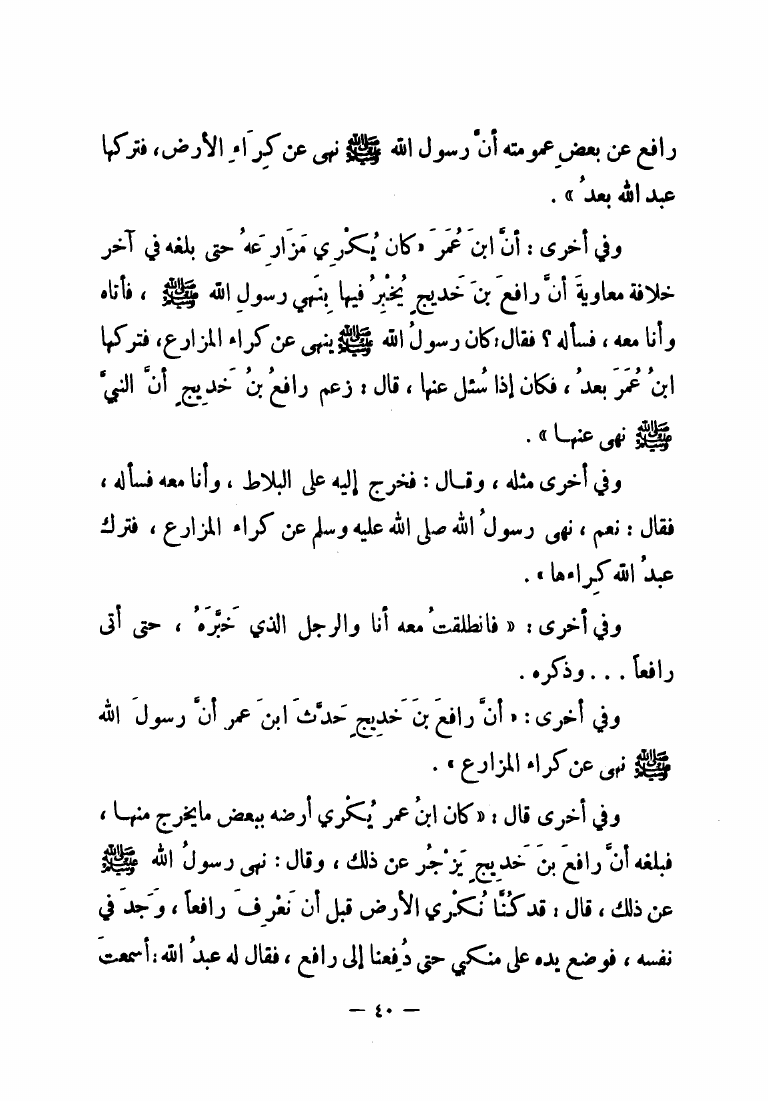 رافع عن بعضِ عمومته أنَّ رسول الله ﷺ نهى عن كِرَاءِ الأرض، فتركها
عبد الله بعدُ » .
وفي أخرى : أنَّ ابنَ عُمَرَ «كان يُكْرِي مَزَارِعَهُ حتى بلغه في آخر
خلافة معاويةَ أنَّ رافعَ بنَ خَديجٍ يُخْبِرُ فيها بِنَهي رسولِ الله ﷺ ، فأتاه
وأنا معه ، فسأله ؟ فقال : كان رسولُ الله ﷺ ينهى عن كراء المزارع، فتركها
ابنُ عُمَرَ بعدُ ، فكان إذا سُئل عنها ، قال : زعم رافعُ بنُ خَدِيجٍ أنَّ النبيَّ
ﷺ نهى عنهـا » .
وفي أخرى مثله ، وقـال : فخرج إليه على البلاط ، وأنا معه فسأله ،
فقال : نعم ، نهى رسولُ الله صلى الله عليه وسلم عن كراء المزارع ، فترك
عبدُ الله كِراءها » .
وفي أخرى : « فانطلقتُ معه أنا والرجل الذي خَبَّرَهُ ، حتى أتى
رافعاً ... وذكره .
وفي أخرى : « أنَّ رافعَ بنَ خَديجٍ حَدَّثَ ابنَ عمر أنَّ رسولَ الله
ﷺ نهى عن كراء المزارع » .
وفي أخرى قال : «كان ابنُ عمر يُكْري أرضه ببعض مايخرج منهـا ،
فبلغه أنَّ رافعَ بنَ خَدِيجٍ يَزْجُر عن ذلك ، وقال : نهى رسولُ الله ﷺ
عن ذلك ، قال : قد كُنَّا نُكْري الأرض قبل أن نَعْرِفَ رافعاً ، وَجَدَ في
نفسه ، فوضع يده على منكبي حتى دُفِعنا إلى رافع ، فقال له عبدُ الله : أسمعتَ
— ٤٠ —